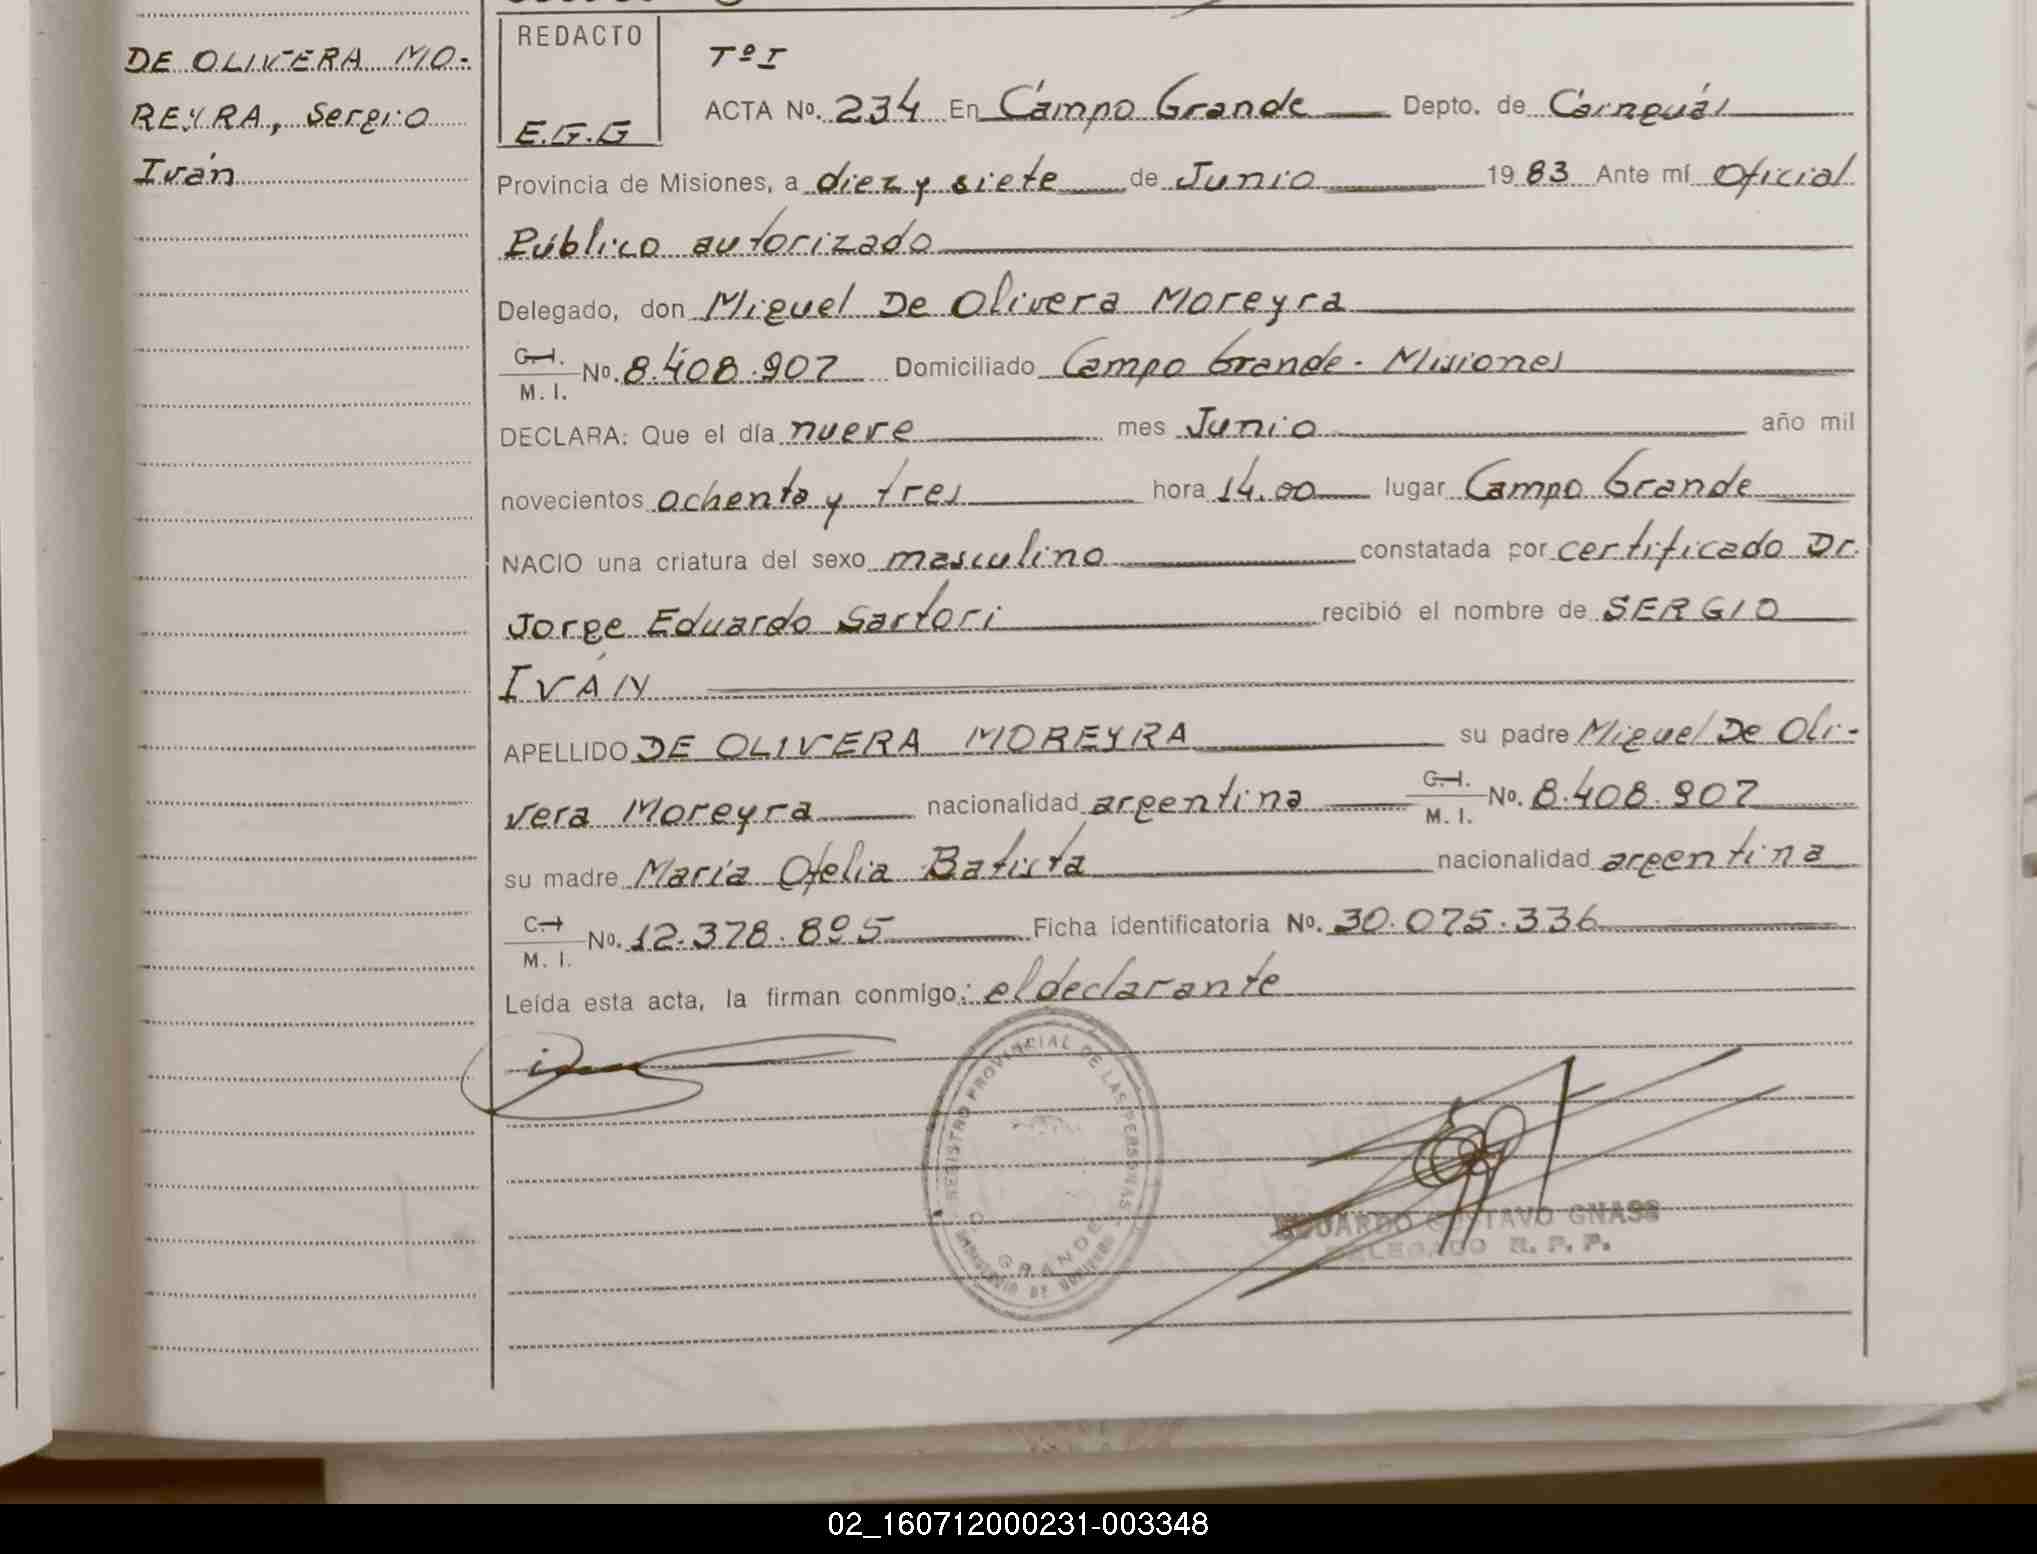 DE OLIVERA MO-
REYRA, Sergio
Iván
REDACTO
E.G.G
Tº I
ACTA Nº. 234 En Campo Grande Depto. de Cainguás
Provincia de Misiones, a diez y siete de Junio 1983 Ante mí Oficial
Público autorizado
Delegado, don Miguel De Olivera Moreyra
C.I. M. I. Nº. 8.408.907 Domiciliado Campo Grande - Misiones
DECLARA: Que el día nueve mes Junio año mil
novecientos ochenta y tres hora 14.00 lugar Campo Grande
NACIO una criatura del sexo masculino constatada por certificado Dr.
Jorge Eduardo Sartori recibió el nombre de SERGIO
IVÁN
APELLIDO DE OLIVERA MOREYRA su padre Miguel De Oli-
vera Moreyra nacionalidad argentina C.I. M. I. Nº. 8.408.907
su madre María Ofelia Batista nacionalidad argentina
C.I. M. I. Nº. 12.378.895 Ficha identificatoria Nº. 30.075.336
Leída esta acta, la firman conmigo: el declarante
REGISTRO PROVINCIAL DE LAS PERSONAS
GRANDE
EDUARDO GUSTAVO GNASS
DELEGADO R. P. P.
02_160712000231-003348